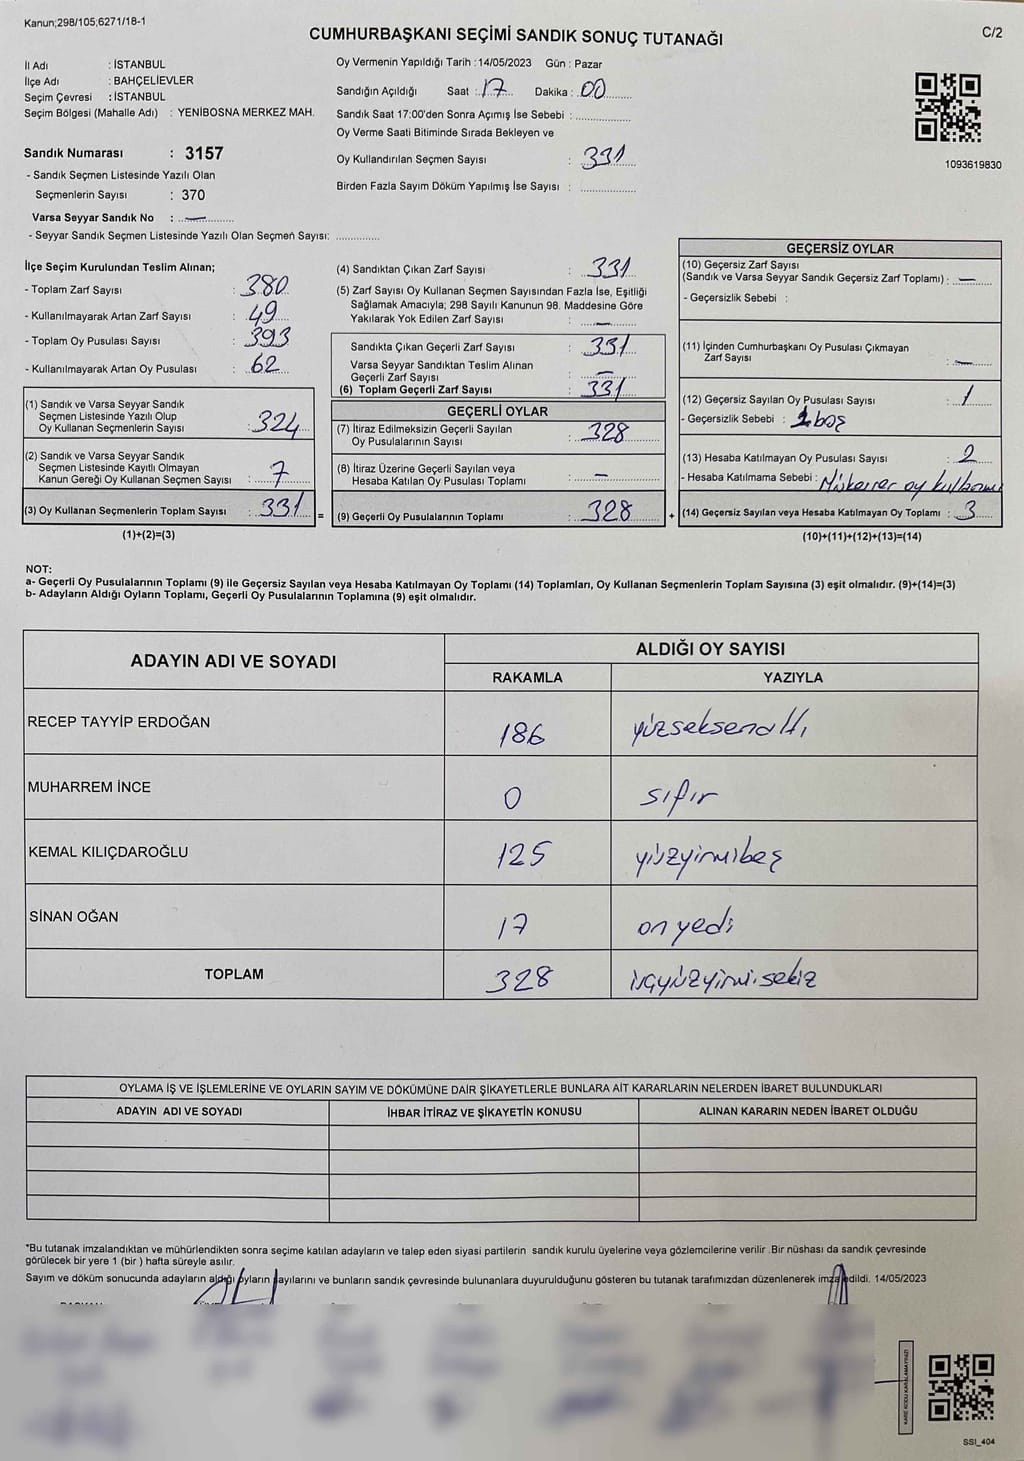 Kanun;298/105;6271/18-1
CUMHURBAŞKANI SEÇİMİ SANDIK SONUÇ TUTANAĞI
C/2
İl Adı : İSTANBUL
İlçe Adı : BAHÇELİEVLER
Seçim Çevresi : İSTANBUL
Seçim Bölgesi (Mahalle Adı) : YENİBOSNA MERKEZ MAH.
Sandık Numarası : 3157
- Sandık Seçmen Listesinde Yazılı Olan
Seçmenlerin Sayısı : 370
Varsa Seyyar Sandık No : —
- Seyyar Sandık Seçmen Listesinde Yazılı Olan Seçmen Sayısı: ..............
Oy Vermenin Yapıldığı Tarih : 14/05/2023 Gün : Pazar
Sandığın Açıldığı Saat : 17 Dakika : 00
Sandık Saat 17:00'den Sonra Açımış İse Sebebi : ..................
Oy Verme Saati Bitiminde Sırada Bekleyen ve
Oy Kullandırılan Seçmen Sayısı : 331
Birden Fazla Sayım Döküm Yapılmış İse Sayısı : ..................
1093619830
İlçe Seçim Kurulundan Teslim Alınan;
- Toplam Zarf Sayısı : 380
- Kullanılmayarak Artan Zarf Sayısı : 49
- Toplam Oy Pusulası Sayısı : 393
- Kullanılmayarak Artan Oy Pusulası : 62
(1) Sandık ve Varsa Seyyar Sandık
Seçmen Listesinde Yazılı Olup
Oy Kullanan Seçmenlerin Sayısı : 324
(2) Sandık ve Varsa Seyyar Sandık
Seçmen Listesinde Kayıtlı Olmayan
Kanun Gereği Oy Kullanan Seçmen Sayısı : 7
(3) Oy Kullanan Seçmenlerin Toplam Sayısı : 331 =
(1)+(2)=(3)
(4) Sandıktan Çıkan Zarf Sayısı : 331
(5) Zarf Sayısı Oy Kullanan Seçmen Sayısından Fazla İse, Eşitliği
Sağlamak Amacıyla; 298 Sayılı Kanunun 98. Maddesine Göre
Yakılarak Yok Edilen Zarf Sayısı : —
Sandıkta Çıkan Geçerli Zarf Sayısı : 331
Varsa Seyyar Sandıktan Teslim Alınan
Geçerli Zarf Sayısı : —
(6) Toplam Geçerli Zarf Sayısı : 331
GEÇERLİ OYLAR
(7) İtiraz Edilmeksizin Geçerli Sayılan
Oy Pusulalarının Sayısı : 328
(8) İtiraz Üzerine Geçerli Sayılan veya
Hesaba Katılan Oy Pusulası Toplamı : —
(9) Geçerli Oy Pusulalarının Toplamı : 328 +
GEÇERSİZ OYLAR
(10) Geçersiz Zarf Sayısı
(Sandık ve Varsa Seyyar Sandık Geçersiz Zarf Toplamı) : —
- Geçersizlik Sebebi :
(11) İçinden Cumhurbaşkanı Oy Pusulası Çıkmayan
Zarf Sayısı : —
(12) Geçersiz Sayılan Oy Pusulası Sayısı : 1
- Geçersizlik Sebebi : 1 boş
(13) Hesaba Katılmayan Oy Pusulası Sayısı : 2
- Hesaba Katılmama Sebebi : Mükerrer oy
(14) Geçersiz Sayılan veya Hesaba Katılmayan Oy Toplamı : 3
(10)+(11)+(12)+(13)=(14)
NOT:
a- Geçerli Oy Pusulalarının Toplamı (9) ile Geçersiz Sayılan veya Hesaba Katılmayan Oy Toplamı (14) Toplamları, Oy Kullanan Seçmenlerin Toplam Sayısına (3) eşit olmalıdır. (9)+(14)=(3)
b- Adayların Aldığı Oyların Toplamı, Geçerli Oy Pusulalarının Toplamına (9) eşit olmalıdır.
ADAYIN ADI VE SOYADI
ALDIĞI OY SAYISI
RAKAMLA YAZIYLA
RECEP TAYYİP ERDOĞAN 186 yüzseksenaltı
MUHARREM İNCE 0 sıfır
KEMAL KILIÇDAROĞLU 125 yüzyirmibeş
SİNAN OĞAN 17 onyedi
TOPLAM 328 üçyüzyirmisekiz
OYLAMA İŞ VE İŞLEMLERİNE VE OYLARIN SAYIM VE DÖKÜMÜNE DAİR ŞİKAYETLERLE BUNLARA AİT KARARLARIN NELERDEN İBARET BULUNDUKLARI
ADAYIN ADI VE SOYADI İHBAR İTİRAZ VE ŞİKAYETİN KONUSU ALINAN KARARIN NEDEN İBARET OLDUĞU
*Bu tutanak imzalandıktan ve mühürlendikten sonra seçime katılan adayların ve talep eden siyasi partilerin sandık kurulu üyelerine veya gözlemcilerine verilir .Bir nüshası da sandık çevresinde
görülecek bir yere 1 (bir ) hafta süreyle asılır.
Sayım ve döküm sonucunda adayların aldığı oyların sayılarını ve bunların sandık çevresinde bulunanlara duyurulduğunu gösteren bu tutanak tarafımızdan düzenlenerek imza edildi. 14/05/2023
KARE KODU KARALAMAYINIZ!
SSI_404